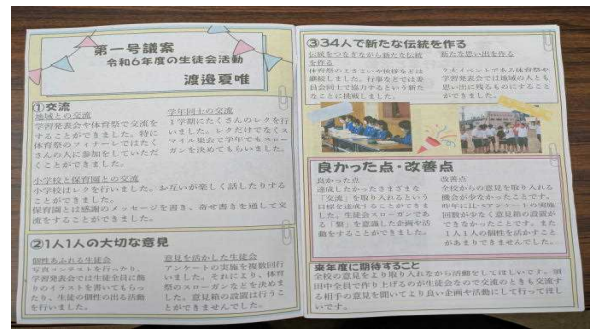 第一号議案
令和6年度の生徒会活動
渡邉夏唯
①交流
地域との交流
学習発表会や体育祭で交流を
することができました。特に
体育祭のフィナーレではたく
さんの人に参加をしていただ
くことができました。
学年同士の交流
1学期にたくさんのレクを行
いました。レクだけでなくス
マイル集会で学年でもスロー
ガンを決めてもらいました。
小学校と保育園との交流
小学校はレクを行いました。お互いが楽しく話したりする
ことができました。
保育園とは感謝のメッセージを書き、寄せ書きを通して交
流をすることができました。
②1人1人の大切な意見
個性あふれる生徒会
写真コンテストを行ったり、
学習発表会では生徒全員に飾
りのイラストを書いてもらっ
たり、生徒の個性の出る活動
を行いました。
意見を活かした生徒会
アンケートの実施を複数回行
いました。それにより、体育
祭のスローガンなどを決めま
した。意見箱の設置は行うこ
とができませんでした。
③34人で新たな伝統を作る
伝統をつなぎながら新たな伝統
を作る
体育祭のよさこいや挨拶などは
継続しました。行事などでは委
員会同士で協力するという新た
なことに挑戦しました。
新たな思い出を作る
学習発表会では地域の人とも
思い出に残るものにすること
ができました。
良かった点・改善点
良かった点
達成したかったさまざまな
「交流」を取り入れるという
目標を達成することができま
した。生徒会スローガンであ
る「繋」を意識した企画や活
動をすることができました。
改善点
全校からの意見を取り入れる
機会が少なかったことです。
昨年に比べアンケートの実施
回数が少なく意見箱の設置が
できなかったことです。また
1人1人の個性を活かすこと
があまりできませんでした。
来年度に期待すること
全校の意見をより取り入れながら活動をしてほしいです。
田中全員で作り上げるのが生徒会なので交流のときも交流す
る相手の意見を聞いてより良い企画や活動にして行ってほし
いです。